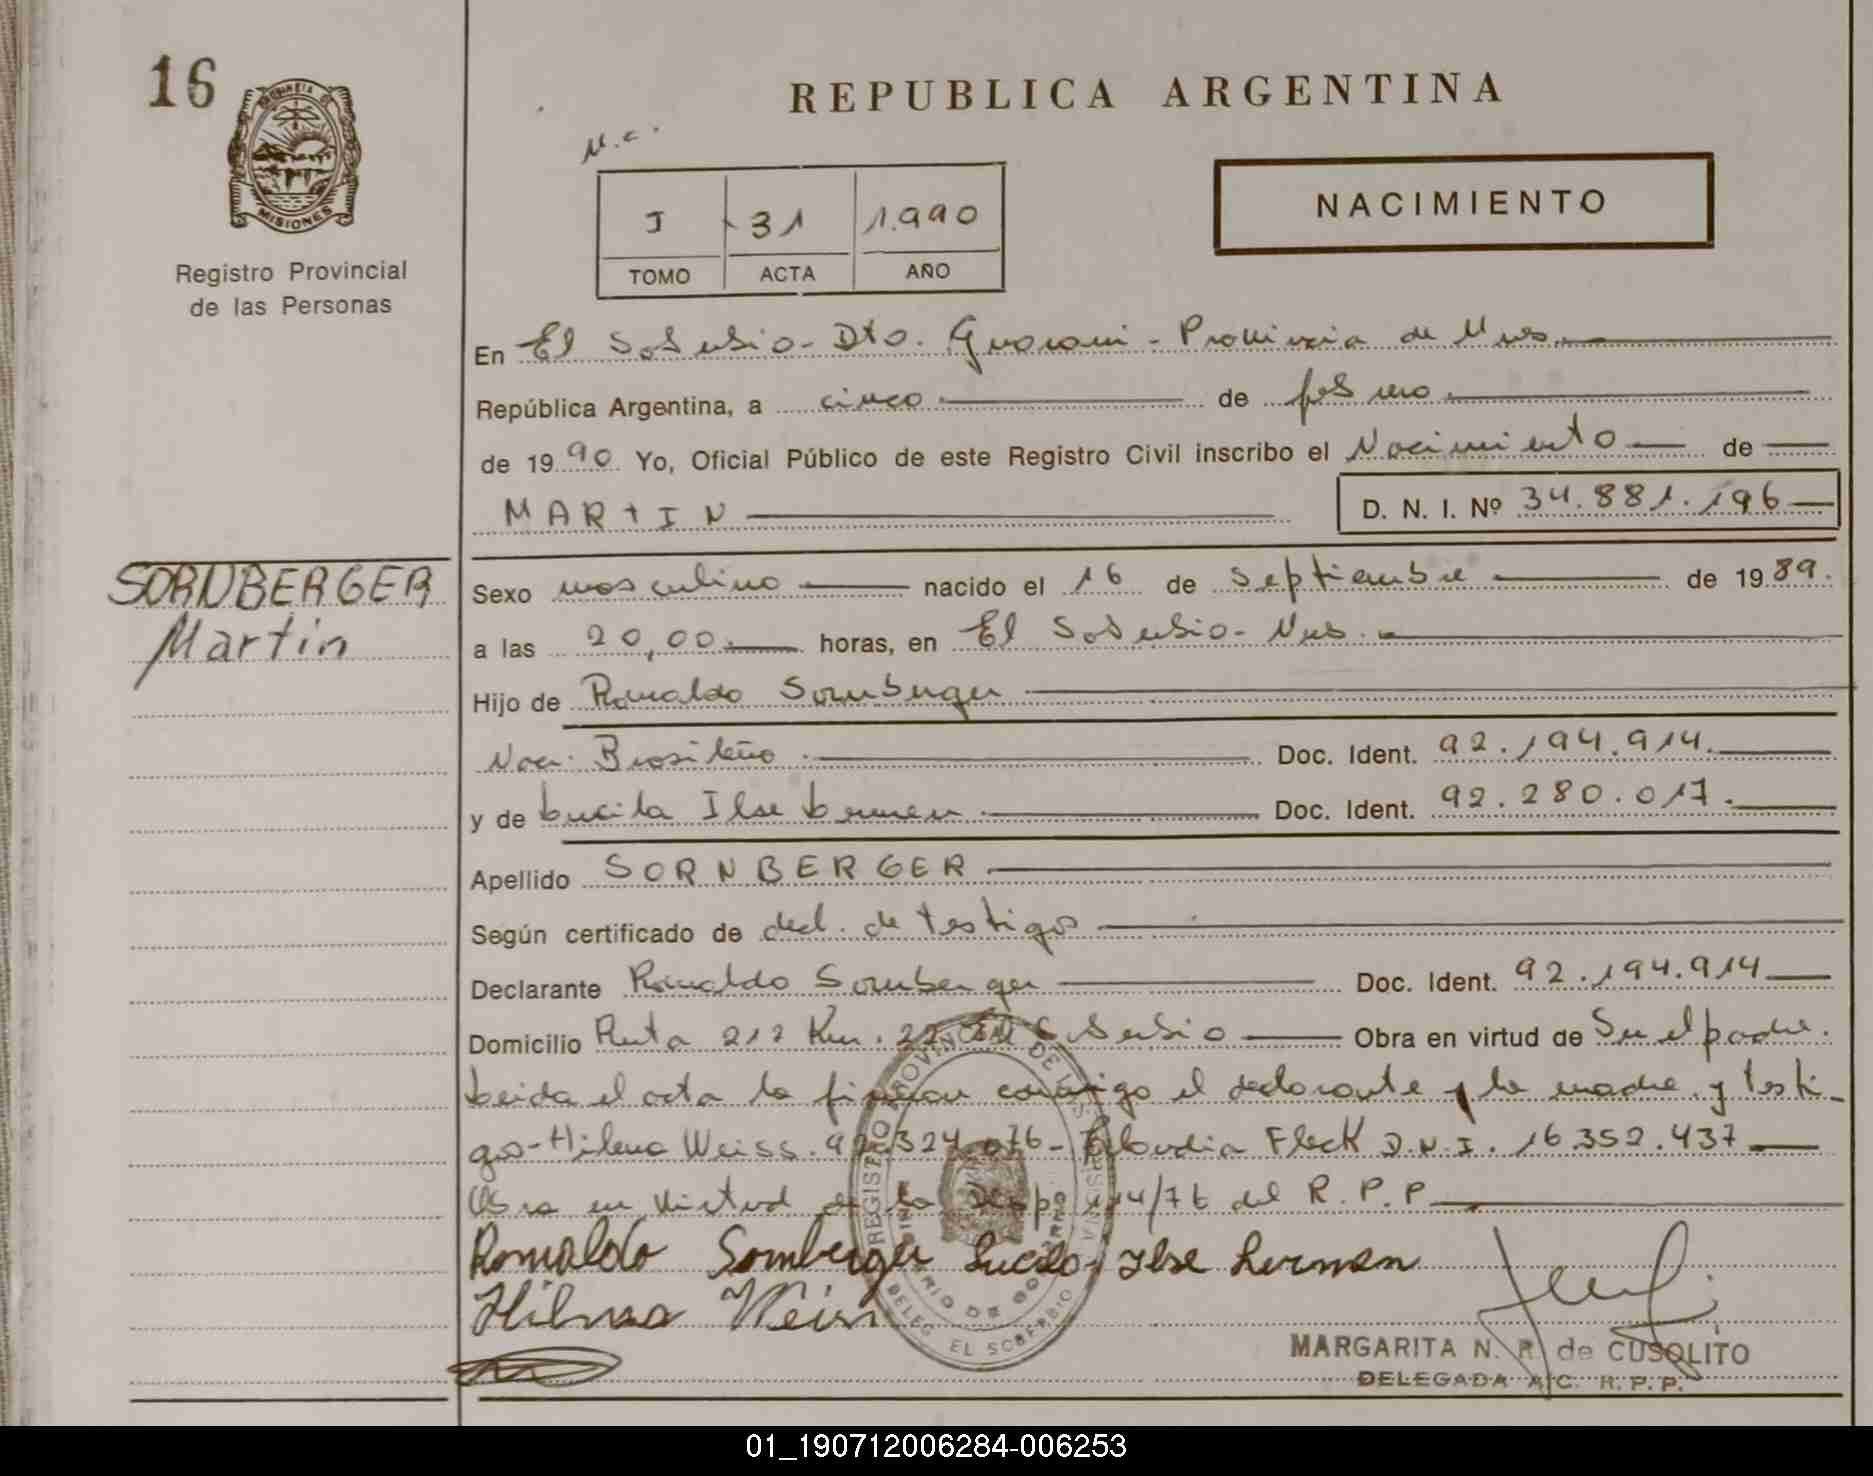 16
PROVINCIA DE
MISIONES
Registro Provincial
de las Personas
REPUBLICA ARGENTINA
NACIMIENTO
I 31 1.990
TOMO ACTA AÑO
En El Soberbio - Dto. Guarani - Provincia de Mnes.
República Argentina, a cinco de febrero
de 1990 Yo, Oficial Público de este Registro Civil inscribo el Nacimiento de
MARTIN D. N. I. Nº 34.881.196
SORNBERGER
Martin
Sexo masculino nacido el 16 de Septiembre de 1989.
a las 20,00 horas, en El Soberbio - Mnes.
Hijo de Romaldo Sornberger
Nac: Brasileño Doc. Ident. 92.194.914.
y de Lucila Ilse Lermen Doc. Ident. 92.280.017.
Apellido SORNBERGER
Según certificado de decl. de testigos
Declarante Romaldo Sornberger Doc. Ident. 92.194.914
Domicilio Ruta 212 Km. 22 El Soberbio Obra en virtud de Ser el padre.
Leida el acta la firman conmigo el declarante y la madre y testi-
gos - Hilena Weiss. 92.324.076 - Claudia Fleck D.N.I. 16.352.437
Obra en virtud de la Disp. 114/76 del R.P.P.
Romaldo Sornberger Lucila Ilse Lermen
Hilma Weiss
REGISTRO PROVINCIAL DE LAS PERSONAS
MINISTERIO DE GOBIERNO
DELEG. EL SOBERBIO
MARGARITA N. R. de CUSOLITO
DELEGADA A/C. R. P. P.
01_190712006284-006253